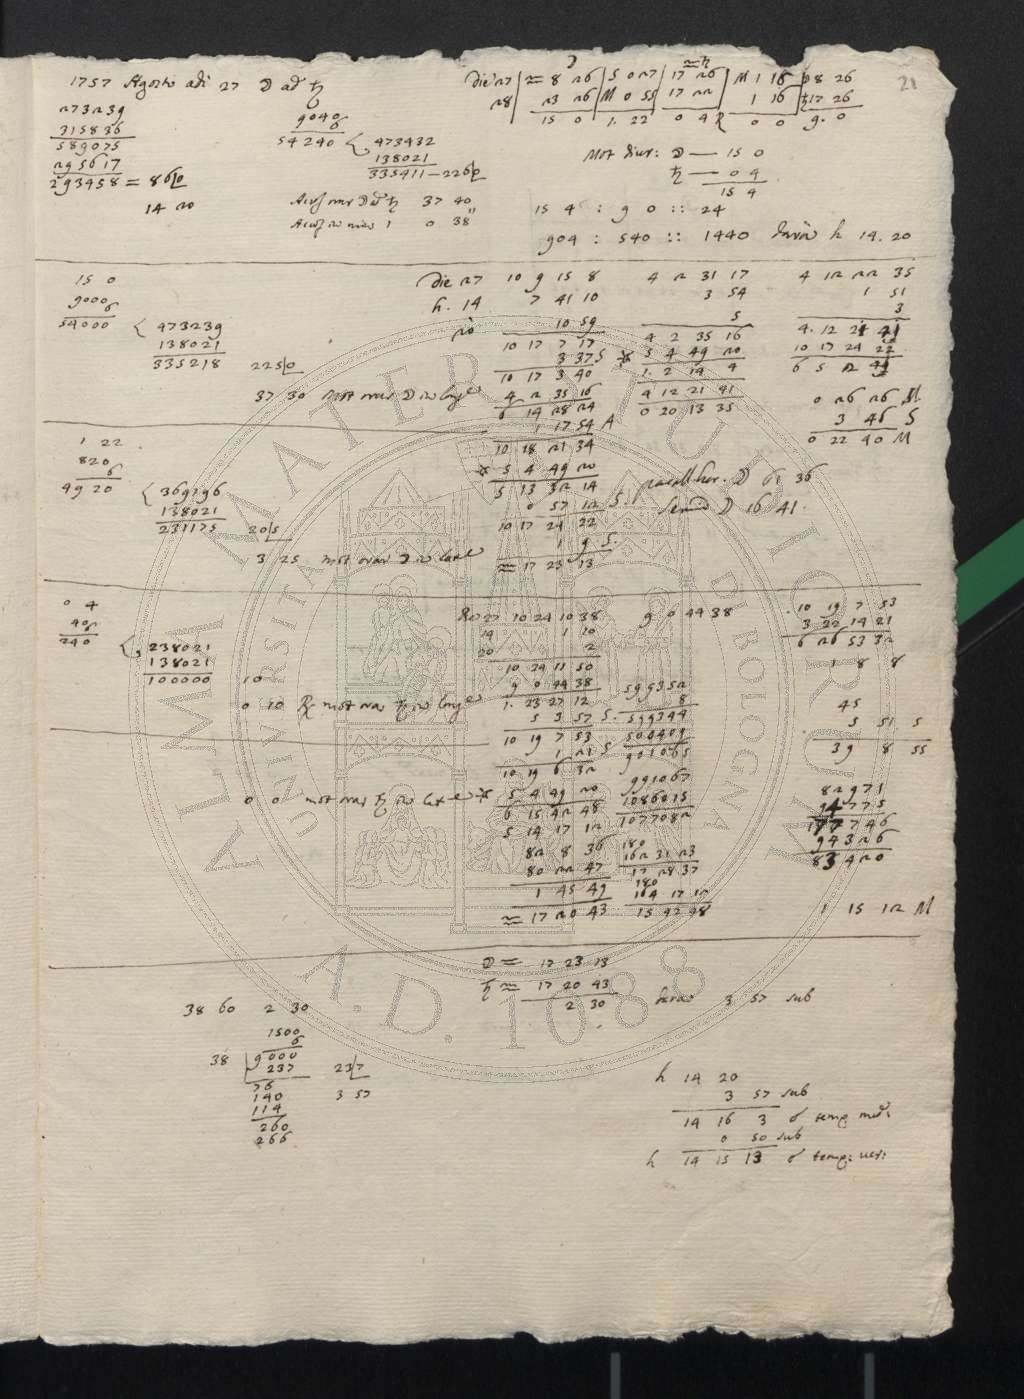 21
1757 Agosto adi 27 ☽ ad ♄
273239
315836
589075
295617
293458 = 86|0
14 20
9040
6
54240
473432
138021
335411 — 226|0
37 40
0 38
☽
♒ ♄
Die 27 ♒ 8 26 5 0 27 17 26 M 1 16 ☽ 8 26
28 23 26 M 0 55 17 22 1 16 ♄ 17 26
15 0 1. 22 0 4 R 0 0 9. 0
Mot diur: ☽ — 15 0
♄ — 0 4
15 4
15 4 : 9 0 :: 24
904 : 540 :: 1440 h 14. 20
15 0
9000
6
54000
473239
138021
335218 225|0
37 30 mot orar ☽ in long
Die 27 10 9 15 8 4 2 31 17 4 12 22 35
h. 14 7 41 10 3 54 1 51
20 10 59 5 3
10 17 7 17 4 2 35 16 4. 12 24 41
3 37 S * 5 4 49 20 10 17 24 22
10 17 3 40 1. 2 14 4 6 5 2 41
4 2 35 16 4 12 21 41 0 26 26 M
6 14 28 24 0 20 13 35 3 46 S
1 17 54 A 0 22 40 M
10 18 21 34
* 5 4 49 20
5 13 32 14
0 57 12 S
10 17 24 22
1 9 S.
♒ 17 23 13
parall hor. ☽ 61 36
Semid ☽ 16 41.
1 22
820
6
49 20
369196
138021
231175 20|5
3 25 mot orar ☽ in lat
0 4
40
6
240
238021
138021
100000 10
0 10 R mot orar ♄ in long
0 0 mot orar ♄ in lat
27 10 24 10 38 9 0 44 38
14 1 10
20 2
10 24 11 50
9 0 44 38
1. 23 27 12
5 3 57 S.
10 19 7 53
1 21 S
10 19 6 32
* 5 4 49 20
6 15 42 48
5 14 17 12
82 8 36
80 22 47
1 45 49
♒ 17 20 43
599352
8
599344
500409
901065
991067
1086015
1077082
180
162 31 23
17 28 37
180
164 17 12
15 42 48
10 19 7 53
3 22 14 21
6 26 53 32
1 8 8
45
5 51 5
39 8 55
82971
94775
177746
94326
83420
1 15 12 M
☽ ♒ 17 23 13
♄ ♒ 17 20 43
2 30 3 57 sub
38 60 2 30
1500
6
38 9000
237 23|7
76
140 3 57
114
260
266
h 14 20
3 57 sub
14 16 3 ☌ temp med:
0 50 sub
h 14 15 13 ☌ temp: ver:
ALMA MATER STUDIORUM
UNIVERSITÀ DI BOLOGNA
A.D. 1088